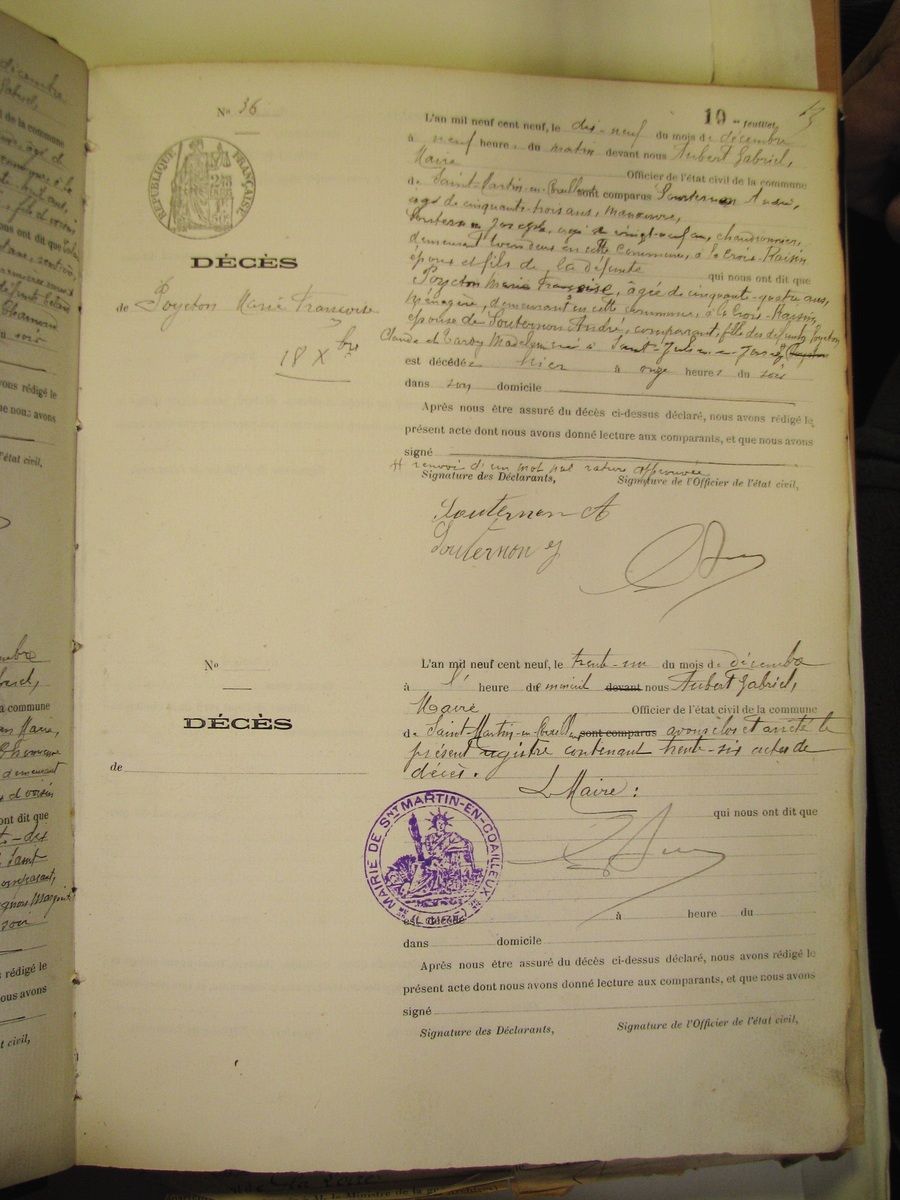 Nº 36
RÉPUBLIQUE FRANÇAISE
DÉCÈS
de Poyeton Marie Françoise
18 Xbre
19
L'an mil neuf cent neuf, le dix-neuf du mois de décembre
à neuf heures du matin devant nous Aubert Gabriel,
Maire Officier de l'état civil de la commune
de Saint-Martin-en-Coailleux sont comparus Souternon André,
âgé de cinquante-trois ans, manœuvre,
Souternon Joseph, âgé de vingt-neuf ans, chaudronnier,
demeurant tous deux en cette commune, à la Croix-Raisin
époux et fils de la défunte qui nous ont dit que
Poyeton Marie Françoise, âgée de cinquante-quatre ans,
ménagère, demeurant en cette commune, à la Croix-Raisin,
épouse de Souternon André, comparant, fille des défunts Poyeton
Claude et Tardy Madeleine née à Saint-Julien-en-Jarez
est décédée hier à onze heures du soir
dans son domicile
Après nous être assuré du décès ci-dessus déclaré, nous avons rédigé le
présent acte dont nous avons donné lecture aux comparants, et que nous avons
signé
renvoi d'un mot nul rature approuvée
Signature des Déclarants, Signature de l'Officier de l'état civil,
Souternon A
Souternon J
Nº
DÉCÈS
de
L'an mil neuf cent neuf, le trente-un du mois de décembre
à l' heure de minuit devant nous Aubert Gabriel,
Maire Officier de l'état civil de la commune
de Saint-Martin-en-Coailleux, sont comparus avons clos et arrêté le
présent registre contenant trente-six actes de
décès.
Le Maire :
qui nous ont dit que
MAIRIE DE St MARTIN-EN-COAILLEUX
est décédé à heure du
dans domicile
Après nous être assuré du décès ci-dessus déclaré, nous avons rédigé le
présent acte dont nous avons donné lecture aux comparants, et que nous avons
signé
Signature des Déclarants, Signature de l'Officier de l'état civil,